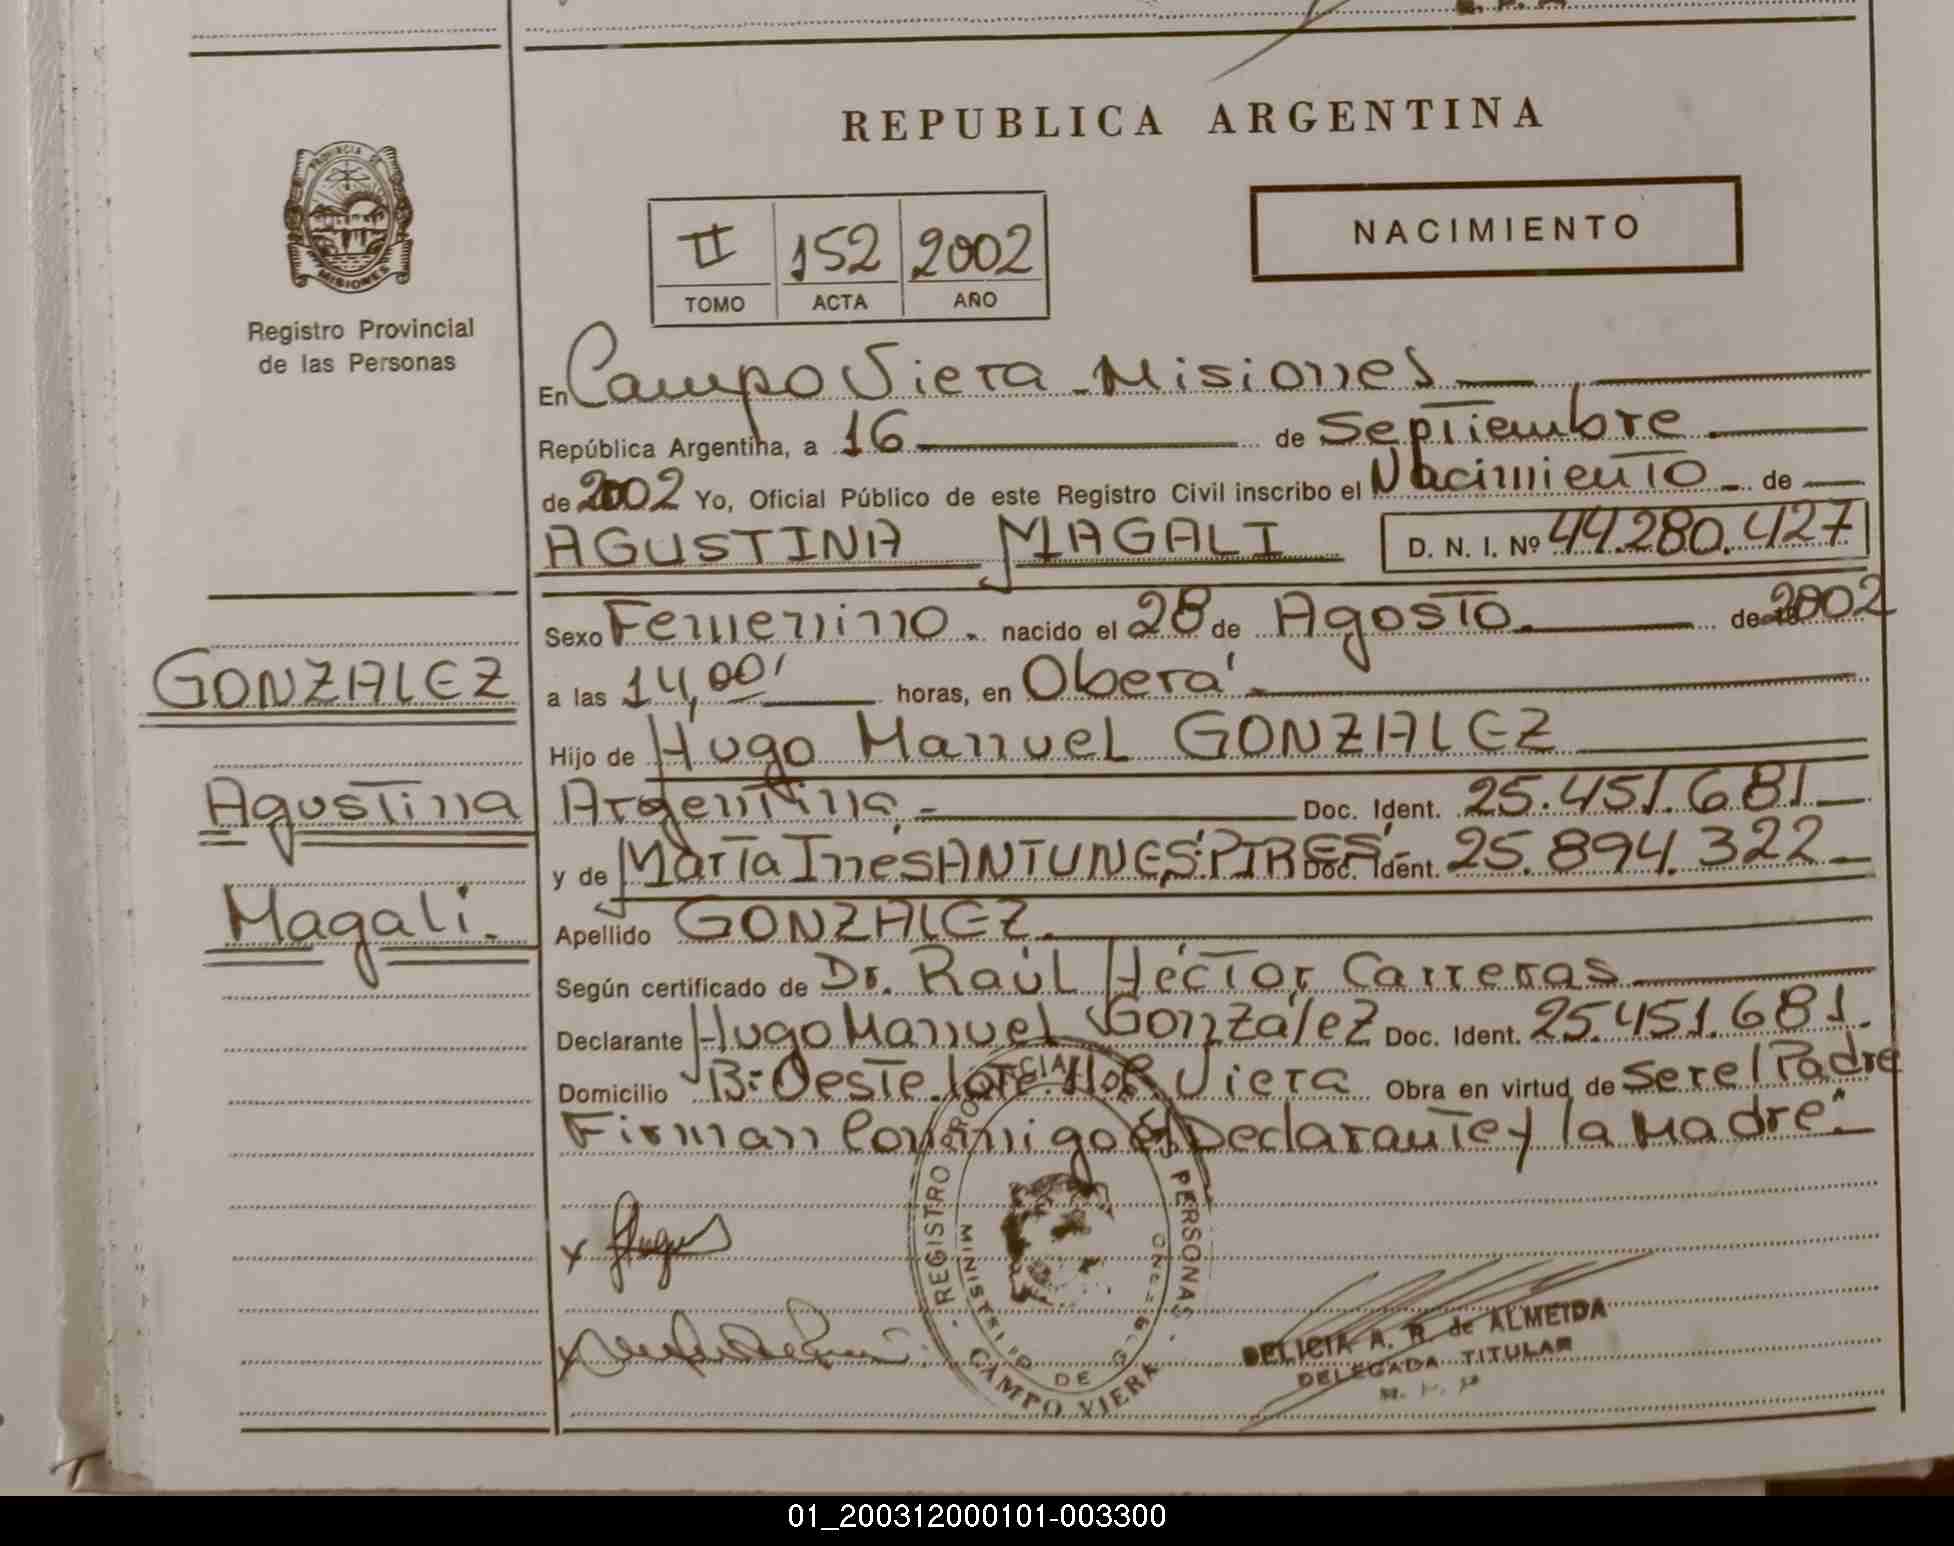 REPUBLICA ARGENTINA
PROVINCIA DE
MISIONES
Registro Provincial
de las Personas
II 152 2002
TOMO ACTA AÑO
NACIMIENTO
En Campo Viera - Misiones
República Argentina, a 16 de Septiembre
de 2002 Yo, Oficial Público de este Registro Civil inscribo el Nacimiento de
AGUSTINA MAGALI D. N. I. Nº 44.280.427
Sexo Femenino. nacido el 28 de Agosto. de 2002
GONZALEZ
a las 14,00' horas, en Oberá
Hijo de Hugo Manuel GONZALEZ
Agustina
Argentina. Doc. Ident. 25.451.681
y de María Inés ANTUNES PIRES Doc. Ident. 25.894.322
Magali.
Apellido GONZALEZ.
Según certificado de Dr. Raúl Héctor Carreras
Declarante Hugo Manuel González Doc. Ident. 25.451.681.
Domicilio B: Oeste. Viera Obra en virtud de ser el Padre
Firman Conmigo el Declarante y la Madre:
REGISTRO PERSONAS
MINISTERIO DE
CAMPO VIERA
DELICIA A. R. de ALMEIDA
DELEGADA TITULAR
01_200312000101-003300